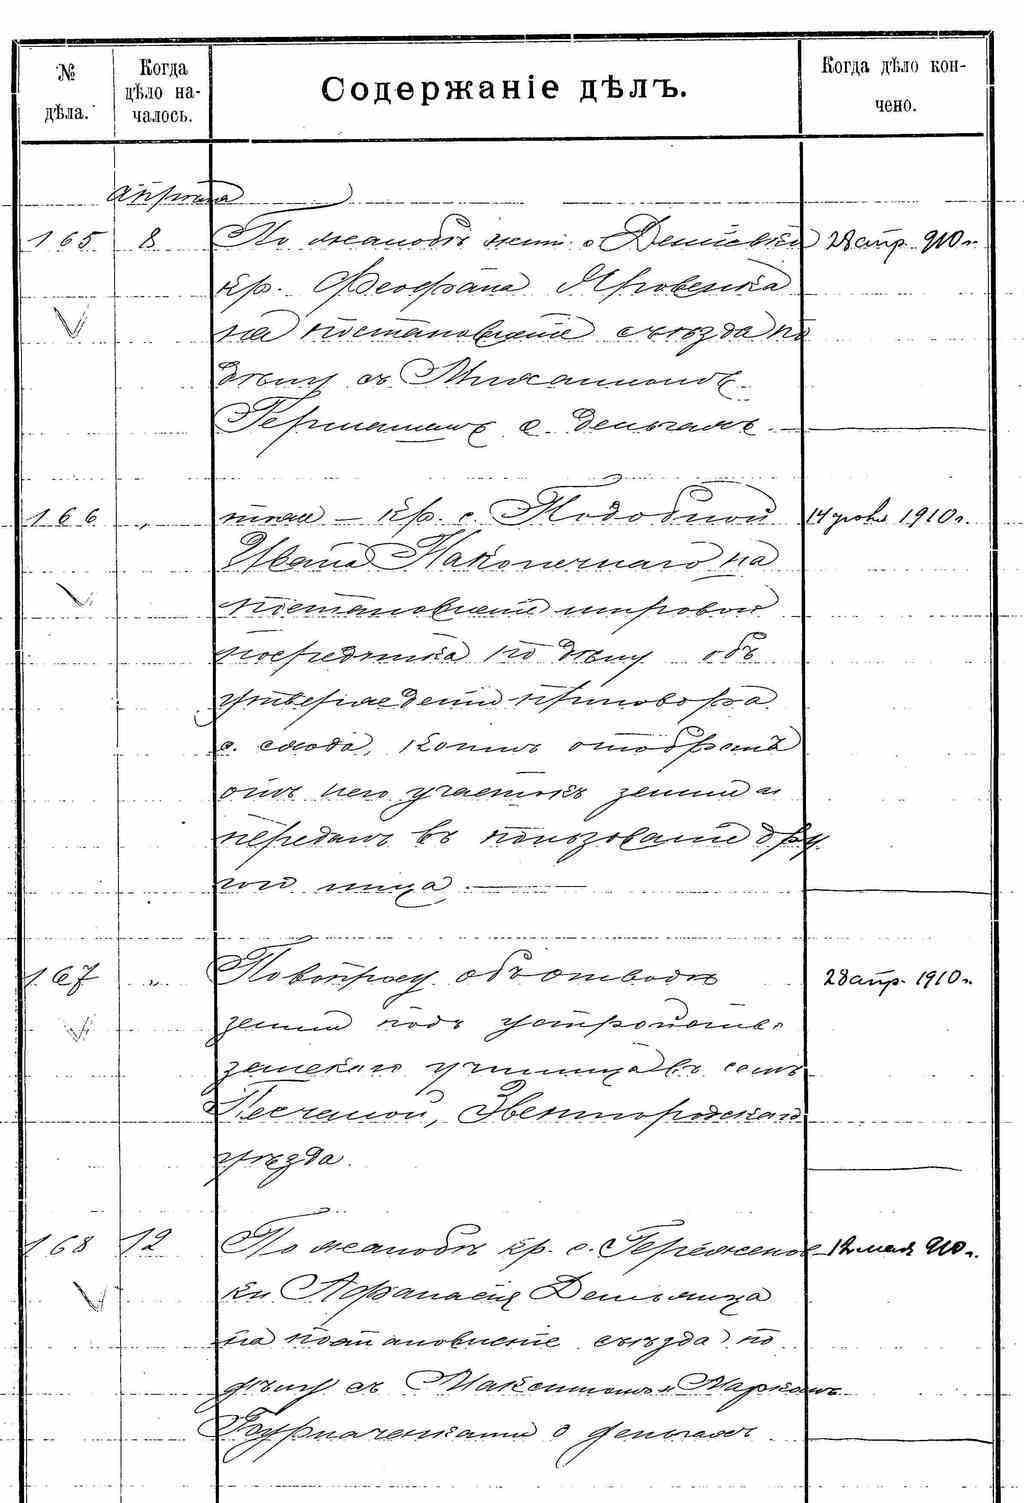 № дѣла.
Когда дѣло началось.
Содержаніе дѣлъ.
Когда дѣло кончено.
апрѣля
165 8 По жалобѣ кр. Деньговки 28 апр. 910 г.
кр. Феофана Яровенка
на постановленіе съѣзда по
дѣлу съ
о деньгахъ.
166 " тоже – кр. с. Подобной 14 1910 г.
Ивана Наконечнаго на
постановленіе мирового
посредника по дѣлу объ
утвержденіи приговора
с. схода, коимъ отобранъ
отъ него участокъ земли и
переданъ въ пользованіе дру
гого лица.
167 " По вопросу объ отводѣ 28 апр. 1910 г.
земли подъ устройство
земскаго училища въ селѣ
Песчаной, Звенигородскаго
уѣзда.
168 12 По жалобѣ кр. с. Гереженов- 12 мая 910 г.
ки Афанасія
на постановленіе съѣзда по
дѣлу съ Максимомъ и Маркомъ
о деньгахъ